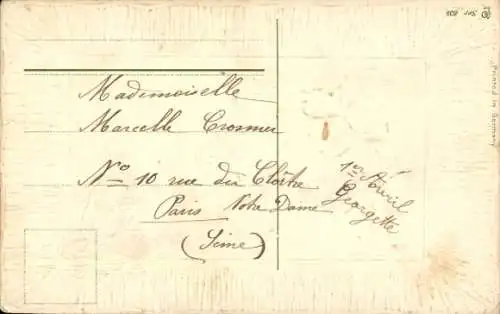 Mademoiselle
Marcelle Crosnier
No 10 rue du Cloître
Paris Notre Dame
(Seine)
1er Avril
Georgette
Printed in Germany